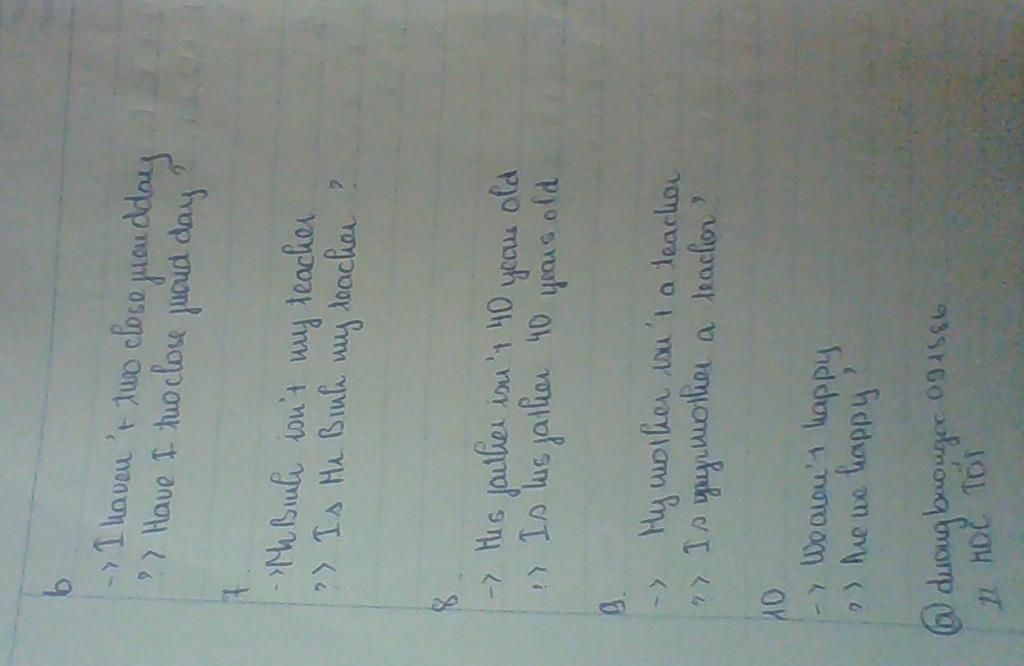 6
-> I haven't two close friend day
?> Have I two close friend day ?
7
-> Mr Binh isn't my teacher
?> Is Mr Binh my teacher ?
8
-> His father isn't 40 years old
?> Is his father 40 years old
9.
-> My mother isn't a teacher
?> Is your mother a teacher ?
10
-> We aren't happy
?> Are we happy ?
@ duongbaongoc 091586
HỌC TỐT